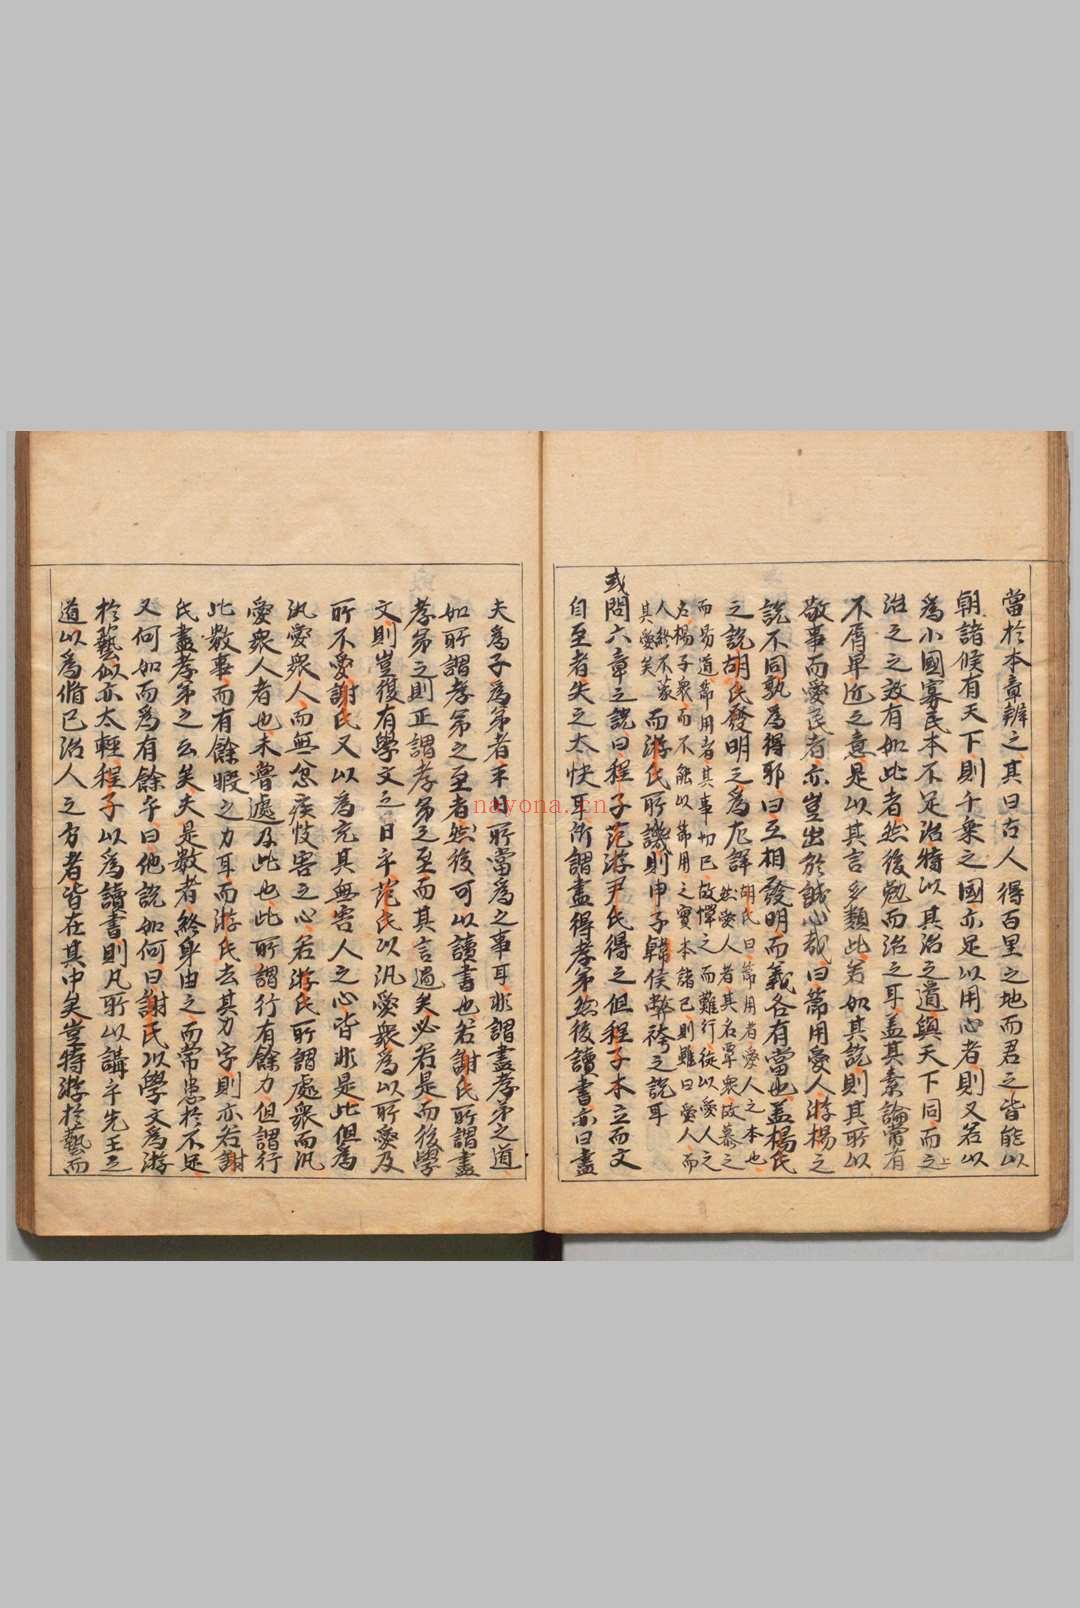 當於本章辨之其曰古人得百里之地而君之皆能以
朝諸侯有天下則千乗之國亦足以用心者則又若以
爲小國寡民本不足治特以其治之道與天下同而上之
治之之效有如此者然後勉而治之耳蓋其素論常有
不屑卑近之意是以其言多類此若如其說則其所以
敬事而愛民者亦豈出於誠心哉曰節用愛人游楊之
說不同孰為得耶曰互相發明而義各有當也蓋楊氏
之說胡氏發明之爲尤詳
胡氏曰節用者愛人之本也
然愛人者其名覃衆故慕之
而易道節用者其事切已故憚之而難行徒以愛人之
名揚于衆而不能以節用之實本諸已則雖曰愛人而
人終不蒙
其愛矣
而游氏所譏則申子韓侯弊袴之說耳
或問六章之說曰程子范游尹氏得之但程子本立而文
自至者失之太快耳所謂盡得孝弟然後讀書亦曰盡
夫為子為弟者平日所當為之事耳非謂盡孝弟之道
如所謂孝弟之至者然後可以讀書也若謝氏所謂盡
孝弟之則正謂孝弟之至而其言過矣必若是而後學
文則豈復有學文之日乎范氏以汎愛衆為以所愛及
所不愛謝氏又以為充其無害人之心皆非是此但為
汎愛衆人而無忿疾忮害之心若游氏所謂處衆而汎
愛衆人者也未嘗遽及此也此所謂行有餘力但謂行
此數事而有餘暇之力耳而游氏去其力字則亦若謝
氏盡孝弟之云矣夫是數者終身由之而常患於不足
又何如而為有餘乎曰他說如何曰謝氏以學文為游
於藝似亦太輕程子以爲讀書則凡所以講乎先王之
道以為脩已治人之方者皆在其中矣豈特游於藝而
nayona.cn